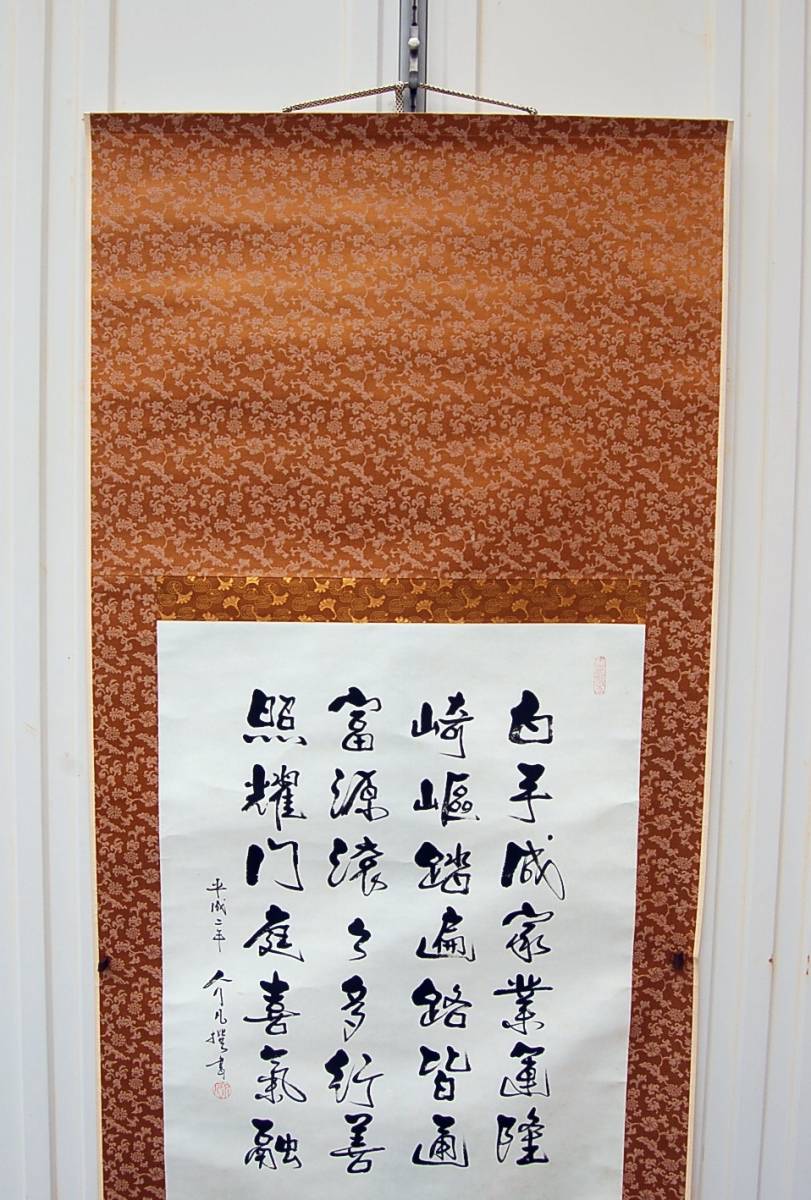 白手成家業運隆
崎嶇踏遍路皆通
富源滾々多行善
照耀門庭喜氣融
平成二年
介凡撰書